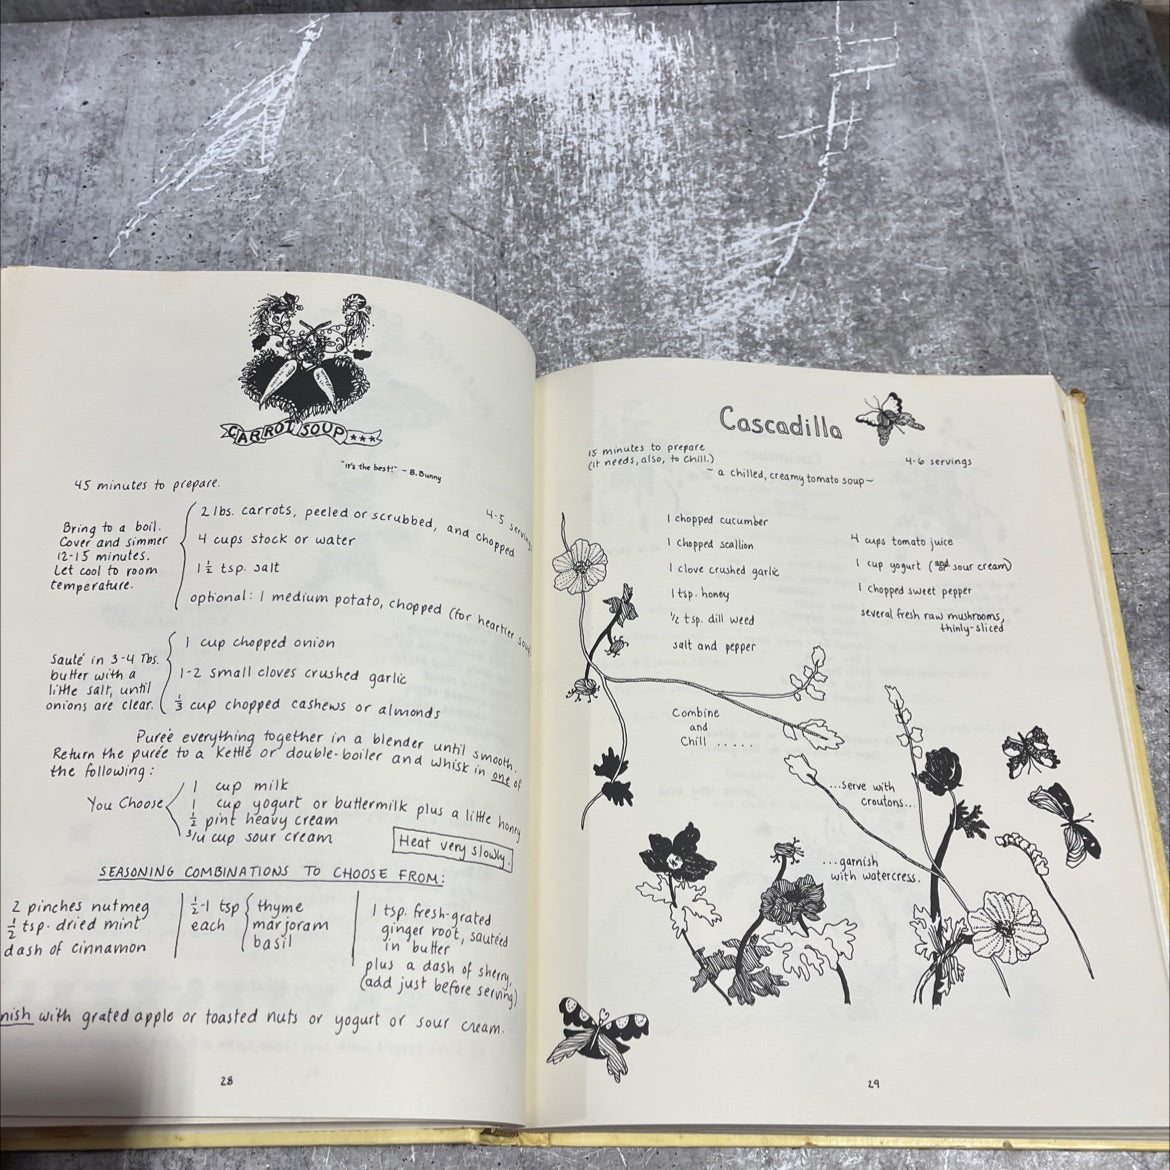 CARROT SOUP ***
"it's the best!" - B. Bunny
45 minutes to prepare.
4-5 servings
Bring to a boil.
Cover and simmer
12-15 minutes.
Let cool to room
temperature.
2 lbs. carrots, peeled or scrubbed, and chopped
4 cups stock or water
1 1/2 tsp. salt
optional: 1 medium potato, chopped (for heartier soup)
Sauté in 3-4 Tbs.
butter with a
little salt, until
onions are clear.
1 cup chopped onion
1-2 small cloves crushed garlic
1/3 cup chopped cashews or almonds
Pureé everything together in a blender until smooth.
Return the pureé to a kettle or double-boiler and whisk in one of
the following:
You Choose
1 cup milk
1 cup yogurt or buttermilk plus a little honey
1/2 pint heavy cream
3/4 cup sour cream
Heat very slowly.
SEASONING COMBINATIONS TO CHOOSE FROM:
2 pinches nutmeg
1/2 tsp. dried mint
dash of cinnamon
1/2-1 tsp
each
thyme
marjoram
basil
1 tsp. fresh-grated
ginger root, sautéed
in butter
plus a dash of sherry,
(add just before serving)
nish with grated apple or toasted nuts or yogurt or sour cream.
28
Cascadilla
15 minutes to prepare
(it needs, also, to chill.)
4-6 servings
~ a chilled, creamy tomato soup ~
1 chopped cucumber
1 chopped scallion
1 clove crushed garlic
1 tsp. honey
1/2 tsp. dill weed
salt and pepper
4 cups tomato juice
1 cup yogurt (and/or sour cream)
1 chopped sweet pepper
several fresh raw mushrooms,
thinly-sliced
Combine
and
Chill .....
...serve with
croutons...
...garnish
with watercress.
29